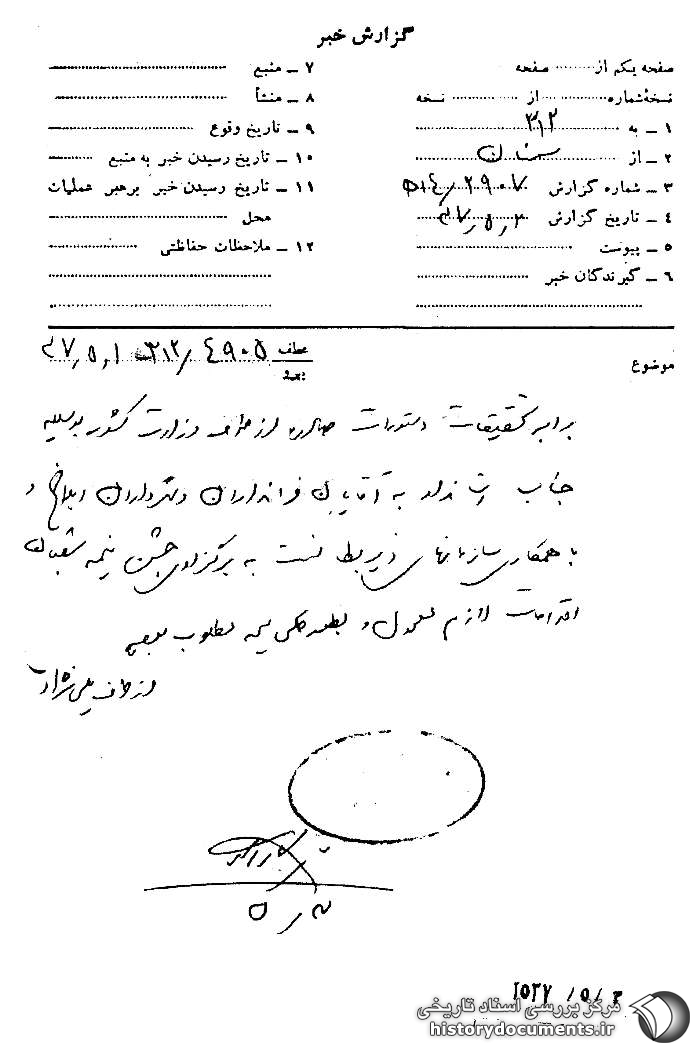 گزارش خبر
صفحه یکم از ........ صفحه
نسخهٔ شماره .............. از .............. نسخه
۱ ـ به ۳۱۲
۲ ـ از
۳ ـ شماره گزارش ۵۱۴/۲۹۰۷
۴ ـ تاریخ گزارش ۳۷٫۵٫۳
۵ ـ پیوست
۶ ـ گیرندگان خبر
۷ ـ منبع
۸ ـ منشأ
۹ ـ تاریخ وقوع
۱۰ ـ تاریخ رسیدن خبر به منبع
۱۱ ـ تاریخ رسیدن خبر برهبر عملیات
محل
۱۲ ـ ملاحظات حفاظتی
موضوع
عطف ۳۱۲/۴۹۰۵
برابر تحقیقات دستورات صادره از طرف وزارت کشور بوسیله
جناب استاندار به آقایان فرمانداران و بخشداران ابلاغ و
با همکاری سازمانهای ذیربط نسبت به برگزاری جشن نیمه شعبان
اقدامات لازم معمول و بطور کلی نتیجه مطلوب
از طرف
۵
۱۵۳۷/۵/۳
مرکز بررسی اسناد تاریخی
historydocuments.ir